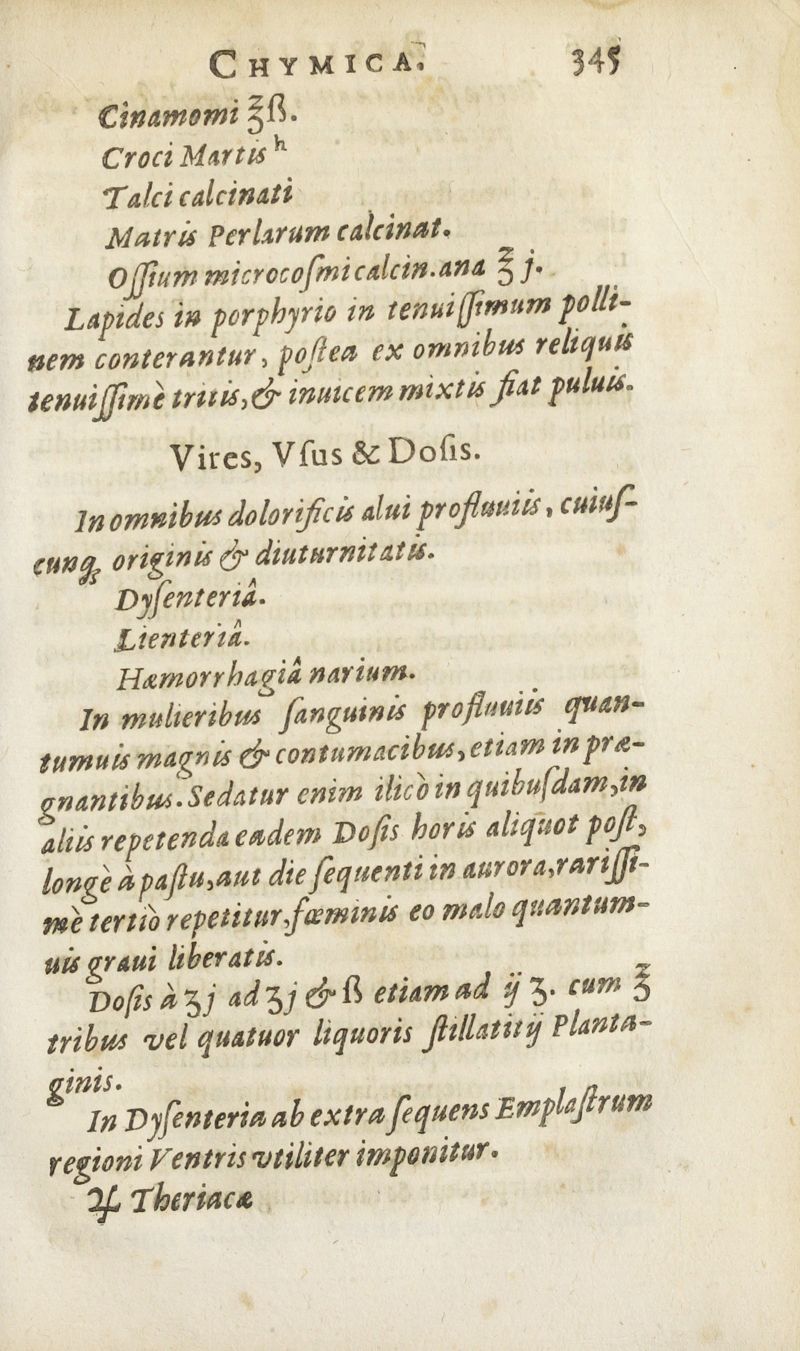 CHYMICA. 345
Cinamomi ℥ß.
Croci Martis h
Talci calcinati
Matris Perlarum calcinat.
Oſſium microcoſmi calcin. ana ℥ j.
Lapides in porphyrio in tenuiſſimum polli-
nem conterantur, poſtea ex omnibus reliquis
tenuiſſimè tritis, & inuicem mixtis fiat puluis.
Vires, Vſus & Doſis.
In omnibus dolorificis alui profluuiis, cuiuſ-
cunq; originis & diuturnitatis.
Dyſenteriâ.
Lienteriâ.
Hæmorrhagiâ narium.
In mulieribus ſanguinis profluuiis quan-
tumuis magnis & contumacibus, etiam in præ-
gnantibus. Sedatur enim ilicò in quibuſdam, in
aliis repetenda eadem Doſis horis aliquot poſt,
longè à paſtu, aut die ſequenti in aurora, rariſſi-
mè tertiò repetitur, fœminis eo malo quantum-
uis graui liberatis.
Doſis à ʒj ad ʒj & ß etiam ad ij ʒ. cum ℥
tribus vel quatuor liquoris ſtillatitij Planta-
ginis.
In Dyſenteria ab extra ſequens Emplaſtrum
regioni Ventris vtiliter imponitur.
♃ Theriacæ